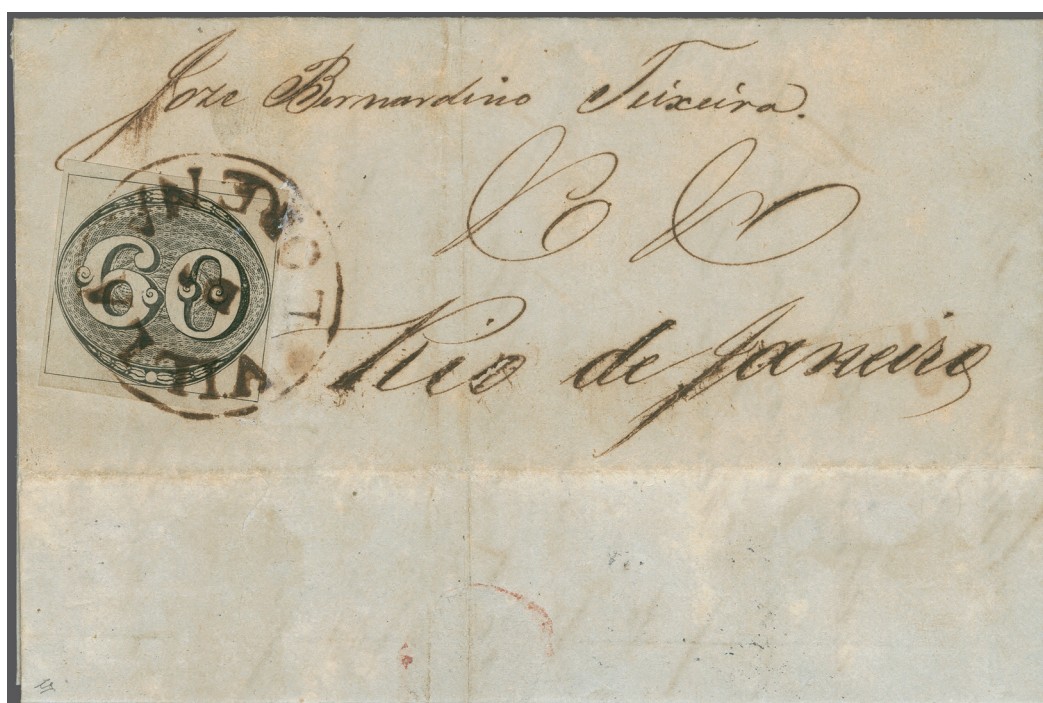 Joze Bernardino Teixeira.
60
Rio de Janeiro